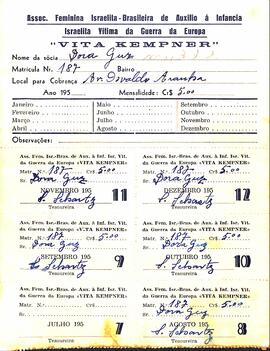 Assoc. Feminina Israelita-Brasileira de Auxilio á Infancia
Israelita Vitima da Guerra da Europa
"VITA KEMPNER"
Nome da sócia Dora Guz
Matricula Nr. 187 Bairro
Local para Cobrança Av. Osvaldo Aranha
Ano 195 Mensalidade: Cr$ 5.00
Janeiro Maio Setembro
Fevereiro Junho Outubro
Março Julho Novembro
Abril Agosto Dezembro
Observações:
Ass. Fem. Isr.-Bras. de Aux. à Inf. Isr. Vit.
da Guerra da Europa «VITA KEMPNER»
Matr. Nr. 187 Cr$ 5.00
Sr. Dora Guz
NOVEMBRO 195 11
Tesoureira
Ass. Fem. Isr.-Bras. de Aux. à Inf. Isr. Vit.
da Guerra da Europa «VITA KEMPNER»
Matr. Nr. 187 Cr$ 5.00
Sr. Dora Guz
DEZEMBRO 195 12
Tesoureira
Ass. Fem. Isr.-Bras. de Aux. à Inf. Isr. Vit.
da Guerra da Europa «VITA KEMPNER»
Matr. Nr. 187 Cr$ 5.00
Sr. Dora Guz
SETEMBRO 195 9
Tesoureira
Ass. Fem. Isr.-Bras. de Aux. à Inf. Isr. Vit.
da Guerra da Europa «VITA KEMPNER»
Matr. Nr. 187 Cr$ 5.00
Sr. Dora Guz
OUTUBRO 195 10
Tesoureira
Ass. Fem. Isr.-Bras. de Aux. à Inf. Isr. Vit.
da Guerra da Europa «VITA KEMPNER»
Matr. Nr. Cr$
Sr.
JULHO 195 7
Tesoureira
Ass. Fem. Isr.-Bras. de Aux. à Inf. Isr. Vit.
da Guerra da Europa «VITA KEMPNER»
Matr. Nr. 187 Cr$ 5.00
Sr. Dora Guz
AGOSTO 195 8
Tesoureira